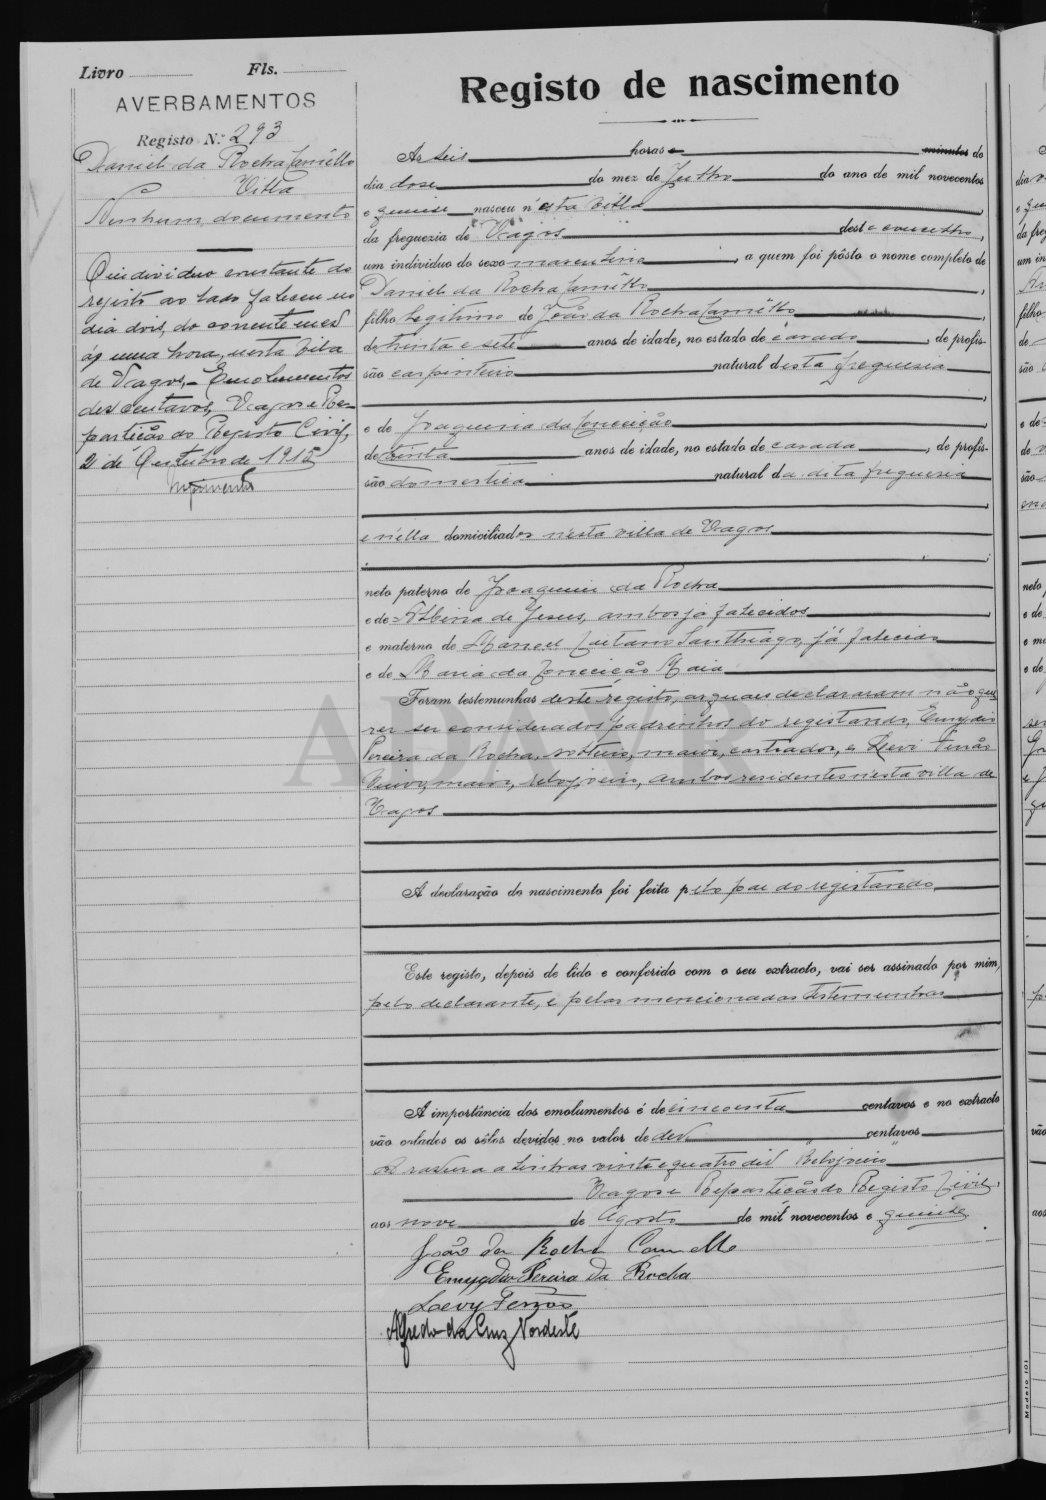 Livro Fls.
AVERBAMENTOS
Registo N.º 293
Daniel da Rocha Camêllo
Villa
Nenhum documento
O individuo constante do
registo ao lado faleceu no
dia dois, do corrente mez
ás uma hora, nesta vila
de Vagos, - Emolumentos
dez centavos, Vagos e Re-
partição do Registo Civil,
2 de Outubro de 1915
Registo de nascimento
Ás seis horas e minutos do
dia dose do mez de Julho do ano de mil novecentos
e quinse nasceu n'esta villa
da freguezia de Vagos deste concelho,
um individuo do sexo masculino, a quem foi pôsto o nome completo de
Daniel da Rocha Camêllo,
filho legitimo de João da Rocha Camêllo,
de trinta e sete anos de idade, no estado de casado, de profis-
são carpinteiro natural desta freguesia
e de Joaquina da Conceição,
de trinta anos de idade, no estado de casada, de profis-
são domestica natural da dita freguesia
e n'ella domiciliados n'esta villa de Vagos
neto paterno de Joaquim da Rocha
e de Albina de Jesus, ambos já falecidos,
e materno de Manoel Santhiago, já falecido
e de Maria da Conceição Maia
Foram testemunhas deste registo, as quaes declararam não que
rer ser considerados padrinhos do registando, Emygdio
Pereira da Rocha, solteiro, maior, castrador, e Levi Ferrão
maior, relojoeiro, ambos residentes nesta villa de
Vagos
A declaração do nascimento foi feita pelo pae do registando
Este registo, depois de lido e conferido com o seu extracto, vai ser assinado por mim,
pelo declarante, e pelas mencionadas testemunhas
A importância dos emolumentos é de cincoenta centavos e no extracto
vão colados os sêlos devidos no valor de dez centavos
A rasura a linhas vinte e quatro diz "Relojoeiro"
Vagos e Repartição do Registo Civil,
aos nove de Agosto de mil novecentos e quinse
João da Rocha Camello
Emygdio Pereira da Rocha
Levy Ferrão
Alfredo da Cruz Nordeste
Modelo 101